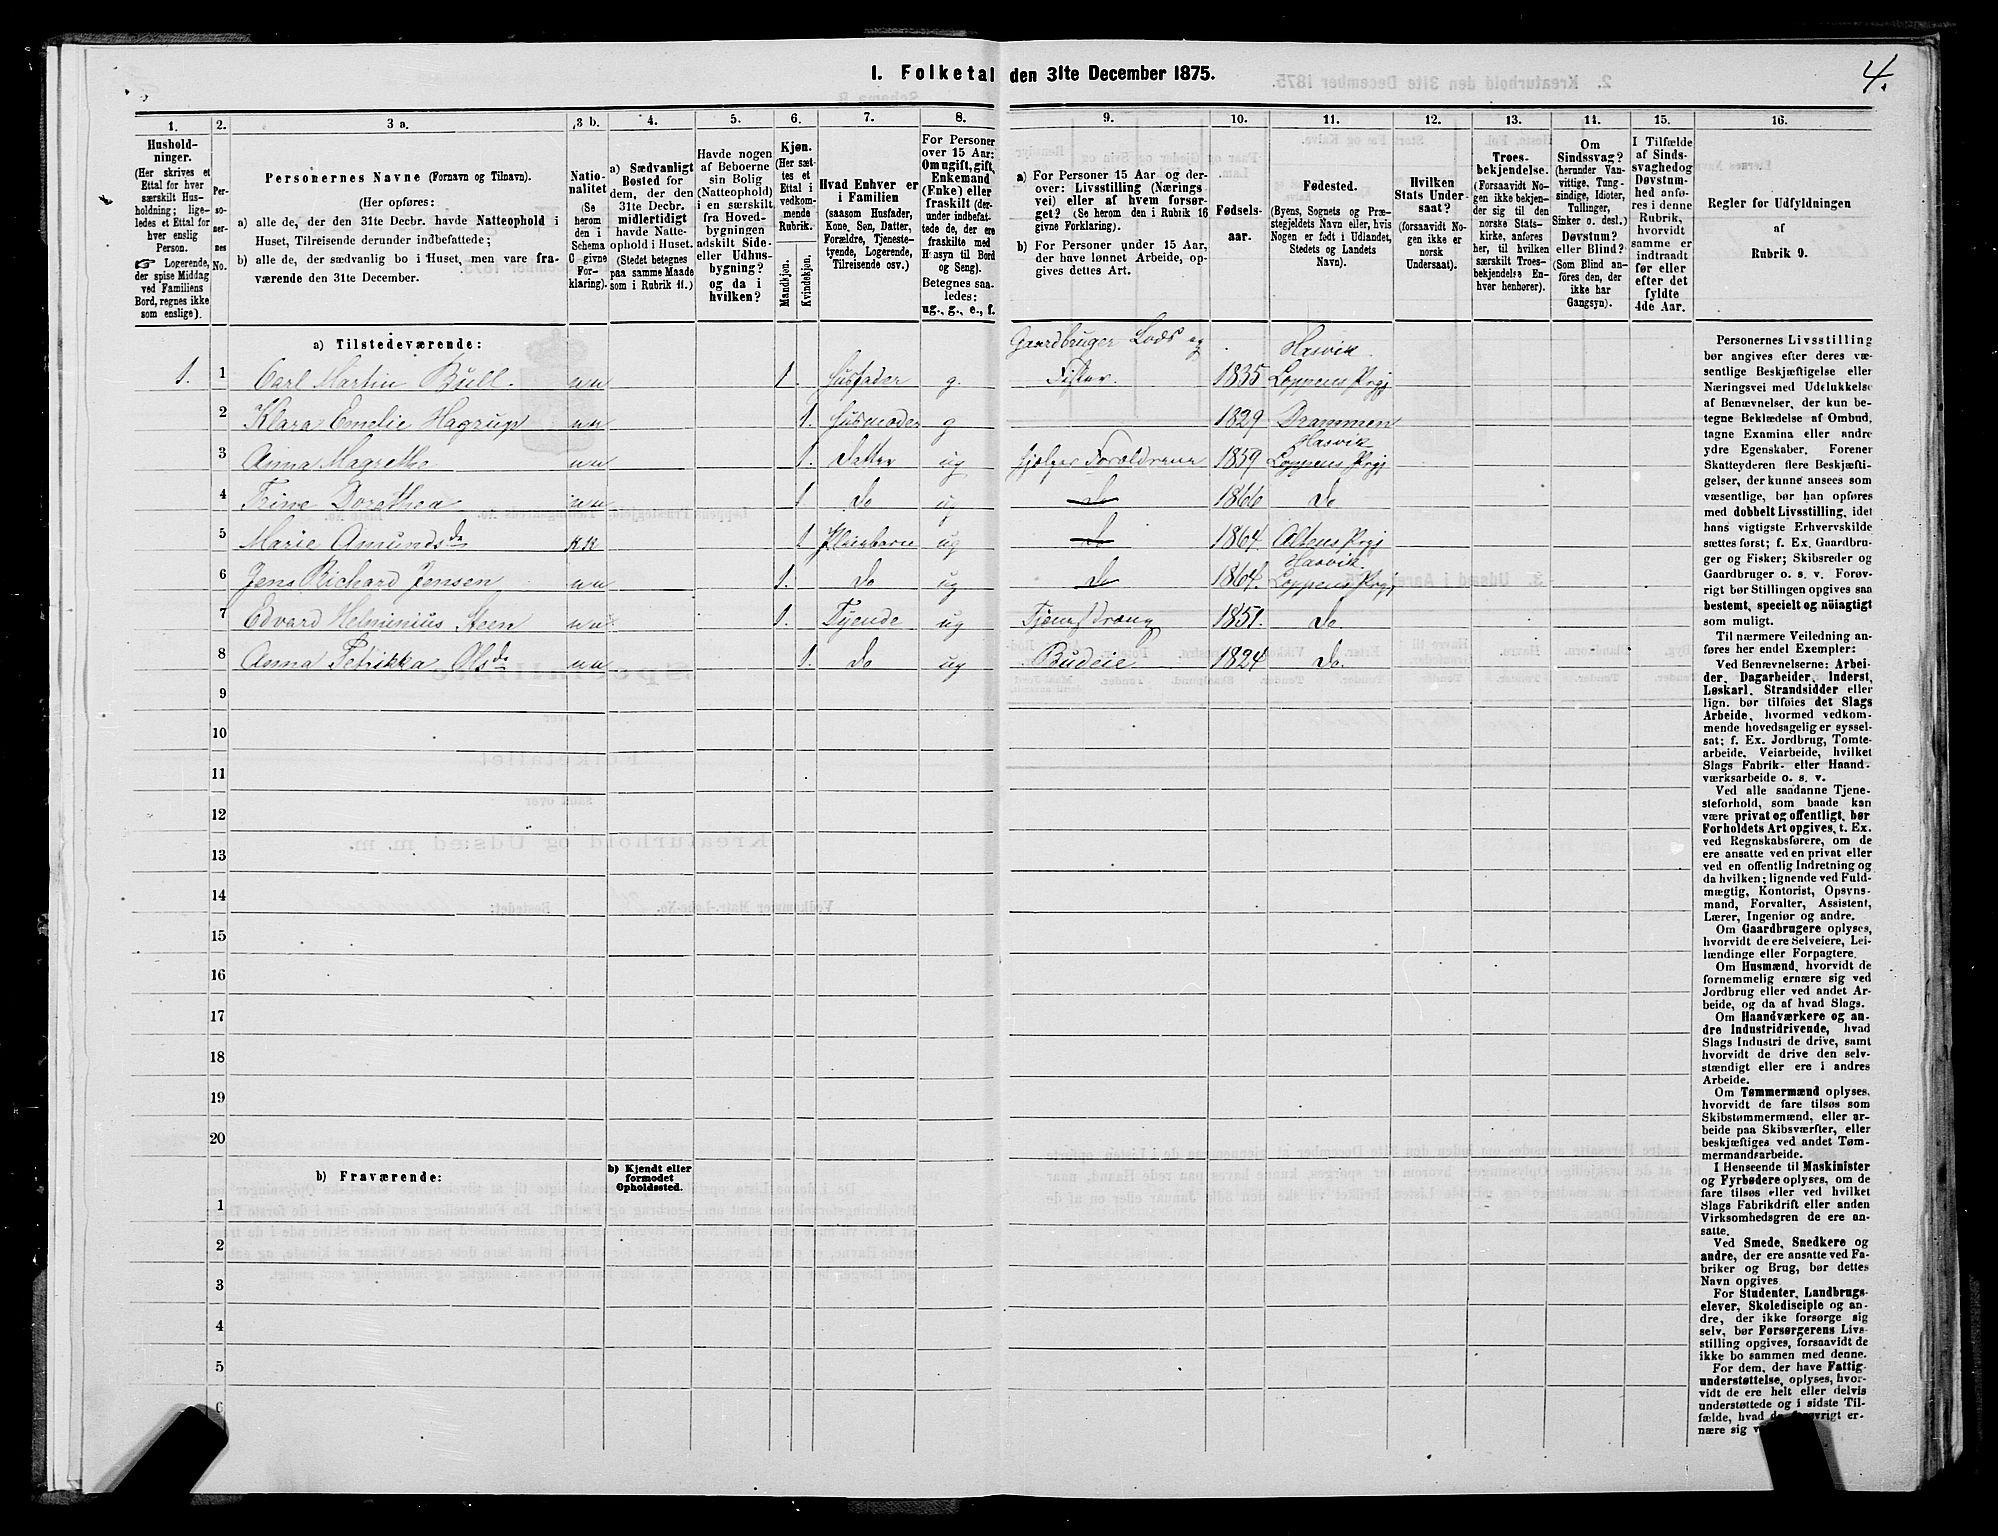 1. Folketal den 31te December 1875.
4.
1.
2.
3 a.
3 b.
4.
5.
6.
7.
8.
9.
10.
11.
12.
13.
14.
15.
16.
Husholdninger.
(Her skrives et
Ettal for hver
særskilt Husholdning;
ligeledes et Ettal for
hver enslig
Person.
☞ Logerende,
der spise Middag
ved Familiens
Bord, regnes ikke
som enslige).
Personernes
No.
Personernes Navne (Fornavn og Tilnavn).
(Her opføres:
a) alle de, der den 31te Decbr. havde Natteophold i
Huset, Tilreisende derunder indbefattede;
b) alle de, der sædvanlig bo i Huset, men vare fraværende
den 31te December.
Nationalitet
(Se
herom
den i
Schema
C givne
Forklaring).
a) Sædvanligt
Bosted for
dem, der den
31te Decbr.
midlertidigt
havde Natteophold
i Huset.
(Stedet betegnes
paa samme Maade
som i Rubrik 11.)
Havde nogen
af Beboerne
sin Bolig
(Natteophold)
i en særskilt
fra Hovedbygningen
adskilt Side-
eller Udhusbygning?
og da i
hvilken?
Kjøn.
(Her sættes
et
Ettal i
vedkommende
Rubrik.
Mandkjøn.
Kvindekjøn.
Hvad Enhver er
i Familien
(saasom Husfader,
Kone, Søn, Datter,
Forældre, Tjenestetyende,
Logerende,
Tilreisende osv.)
For Personer
over 15 Aar:
Om ugift, gift,
Enkemand
(Enke) eller
fraskilt (derunder
indbefattede
de, der ere
fraskilte med
Hensyn til Bord
og Seng).
Betegnes saaledes:
ug., g., e., f.
a) For Personer 15 Aar og derover:
Livsstilling (Næringsvei)
eller af hvem forsørget?
(Se herom den i Rubrik 16
givne Forklaring).
b) For Personer under 15 Aar,
der have lønnet Arbeide, opgives
dettes Art.
Fødselsaar.
Fødested.
(Byens, Sognets og Præstegjeldets
Navn, eller, hvis
Nogen er født i Udlandet,
Stedets og Landets
Navn).
Hvilken
Stats Undersaat?
(forsaavidt Nogen
ikke er
norsk
Undersaat).
Troesbekjendelse.
(Forsaavidt Nogen
ikke bekjender
sig til den
norske Statskirke,
anføres
her, til hvilken
særskilt Troesbekjendelse
Enhver
henhører).
Om
Sindssvag?
(herunder Vanvittige,
Tungsindige,
Idioter,
Tullinger,
Sinker o. desl.)
Døvstum?
eller Blind?
(Som Blind anføres
den, der
ikke har
Gangsyn).
I Tilfælde
af Sindssvaghed
og
Døvstumhed
anføres
i denne
Rubrik,
hvorvidt
samme er
indtraadt
før eller
efter det
fyldte
4de Aar.
Regler for Udfyldningen
af
Rubrik 9.
a) Tilstedeværende:
Gaardbruger Lods og
Hasvik
1. 1 Carl Martin Bull. nn 1. Husfader g. Fisker. 1835 Loppens Prgj
2 Klara Emelie Hagrup nn 1. Husmoder g 1829 Drammen
Hasvik
3 Anna Magrethe nn 1. Datter ug hjelper Forældrene 1859 Loppens Prgj
4 Trine Dorothea nn 1 do ug do 1866 do
5 Marie Amundsdr KK 1 Pleiebarn ug do 1864. Altens Prgj
Hasvik
6 Jens Richard Jensen nn 1. do ug do 1864. Loppens Prgj
7 Edvard Helminius Steen nn 1. Tyende ug Tjenestdreng 1851. do
8 Anna Petrikka Olsdr nn 1. do ug Budeie 1824 do.
9
10
11
12
13
14
15
16
17
18
19
20
b) Fraværende:
b) Kjendt eller
formodet
Opholdssted.
1
2
3
4
5
6
Personernes Livsstilling
bør angives efter deres væsentlige
Beskjæftigelse eller
Næringsvei med Udelukkelse
af Benævnelser, der kun betegne
Beklædelse af Ombud,
tagne Examina eller andre
ydre Egenskaber. Forener
Skatteyderen flere Beskjæftigelser,
der kunne ansees som
væsentlige, bør han opføres
med dobbelt Livsstilling, idet
hans vigtigste Erhvervskilde
sættes først; f. Ex. Gaardbruger
og Fisker; Skibsreder og
Gaardbruger o. s. v. Forøvrigt
bør Stillingen opgives saa
bestemt, specielt og nöiagtigt
som muligt.
Til nærmere Veiledning anføres
her endel Exempler:
Ved Benævnelserne: Arbeider,
Dagarbeider, Inderst,
Løskarl, Strandsidder eller
lign. bør tilføies det Slags
Arbeide, hvormed vedkommende
hovedsagelig er sysselsat;
f. Ex. Jordbrug, Tomtearbeide,
Veiarbeide, hvilket
Slags Fabrik- eller Haandværksarbeide
o. s. v.
Ved alle saadanne Tjenesteforhold,
som baade kan
være privat og offentligt, bør
Forholdets Art opgives, t. Ex.
ved Regnskabsførere, om de
ere ansatte ved en privat eller
ved en offentlig Indretning og
da hvilken; lignende ved Fuldmægtig,
Kontorist, Opsynsmand,
Forvalter, Assistent,
Lærer, Ingeniør og andre.
Om Gaardbrugere oplyses,
hvorvidt de ere Selveiere, Leilændinge
eller Forpagtere.
Om Husmænd, hvorvidt de
fornemmelig ernære sig ved
Jordbrug eller ved andet Arbeide,
og da af hvad Slags.
Om Haandværkere og andre
Industridrivende, hvad
Slags Industri de drive, samt
hvorvidt de drive den selvstændigt
eller ere i andres
Arbeide.
Om Tømmermænd oplyses,
hvorvidt de fare tilsøs som
Skibstømmermænd, eller arbeide
paa Skibsværfter, eller
beskjæftiges ved andet Tømmermandsarbeide.
I Henseende til Maskinister
og Fyrbødere oplyses, om de
fare tilsøs eller ved hvilket
Slags Fabrikdrift eller anden
Virksomhedsgren de ere ansatte.
Ved Smede, Snedkere og
andre, der ere ansatte ved Fabriker
og Brug, bør dettes
Navn opgives
For Studenter, Landbrugselever,
Skoledisciple og andre,
der ikke forsørge sig
selv, bør Forsørgerens Livsstilling
opgives, forsaavidt de
ikke bo sammen med denne.
For dem, der have Fattigunderstøttelse,
oplyses, hvorvidt
de ere helt eller delvis
understøttede og i sidste Tilfælde,
hvad de øvrigt ernære
sig v